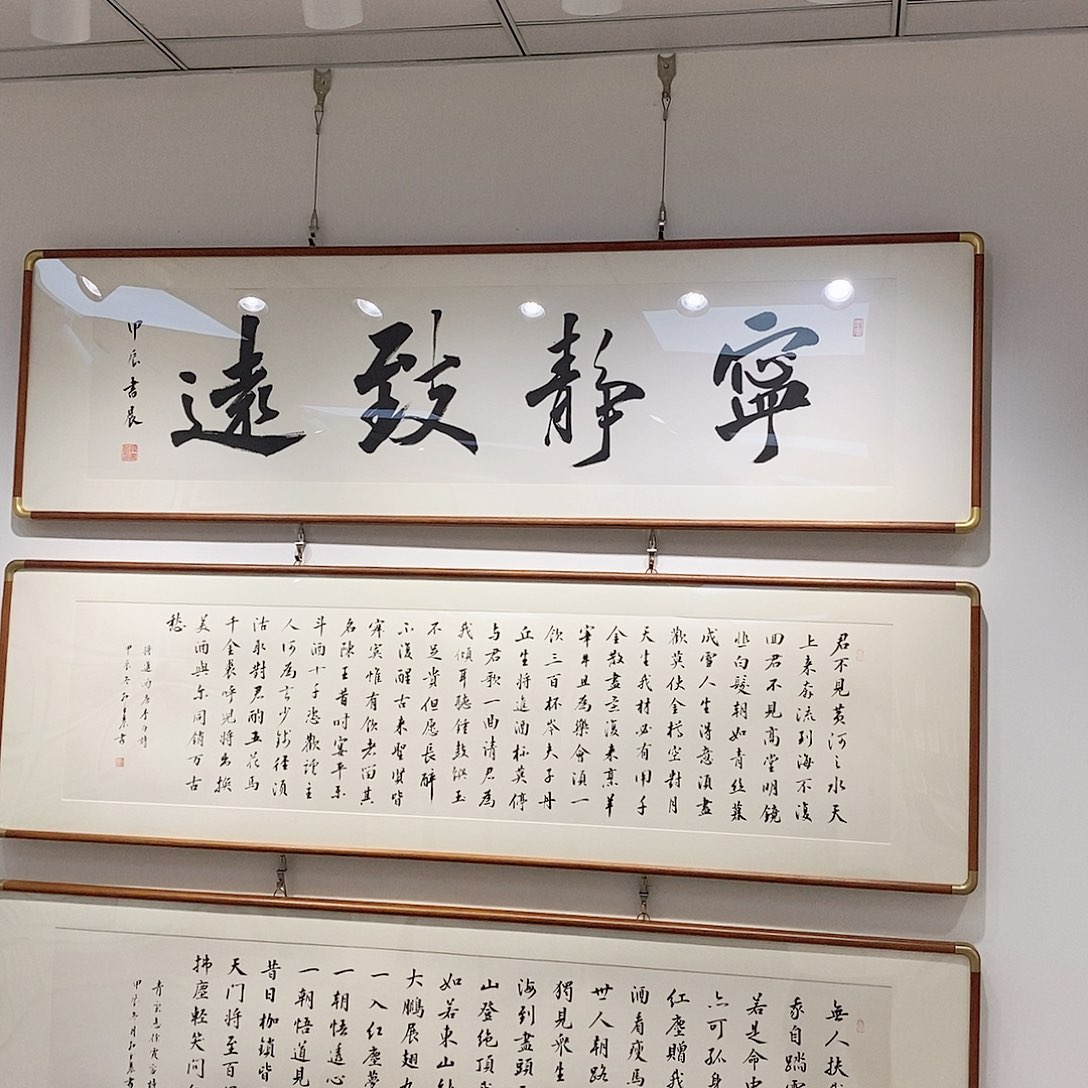 寧靜致遠
甲辰書晨
君不見黄河之水天
上来奔流到海不復
回君不見高堂明鏡
悲白髮朝如青丝暮
成雪人生得意須盡
歡莫使金樽空對月
天生我材必有用千
金散盡還復来烹羊
宰牛且為樂會須一
飲三百杯岑夫子丹
丘生将進酒杯莫停
与君歌一曲请君為
我傾耳聽鍾鼓饌玉
不足貴但愿長醉
不復醒古来聖賢皆
寂寞惟有飲者留其
名陳王昔时宴平乐
斗酒十千恣歡謔主
人何為言少錢徑須
沽取對君酌五花馬
千金裘呼兒将出换
美酒與尔同銷万古
愁
将進酒唐李白詩
甲辰冬
無人扶
我自踏雪
若是命中
亦可孤身
红塵贈我
酒看瘦馬
世人朝路
獨見衆生
海到盡頭
山登绝頂我
如若東山
大鵬展翅
一入红塵夢
一朝悟透心
一朝悟道見
昔日枷鎖皆
天门将至百
拂塵輕笑问
青雲志徐霞客
甲辰冬月